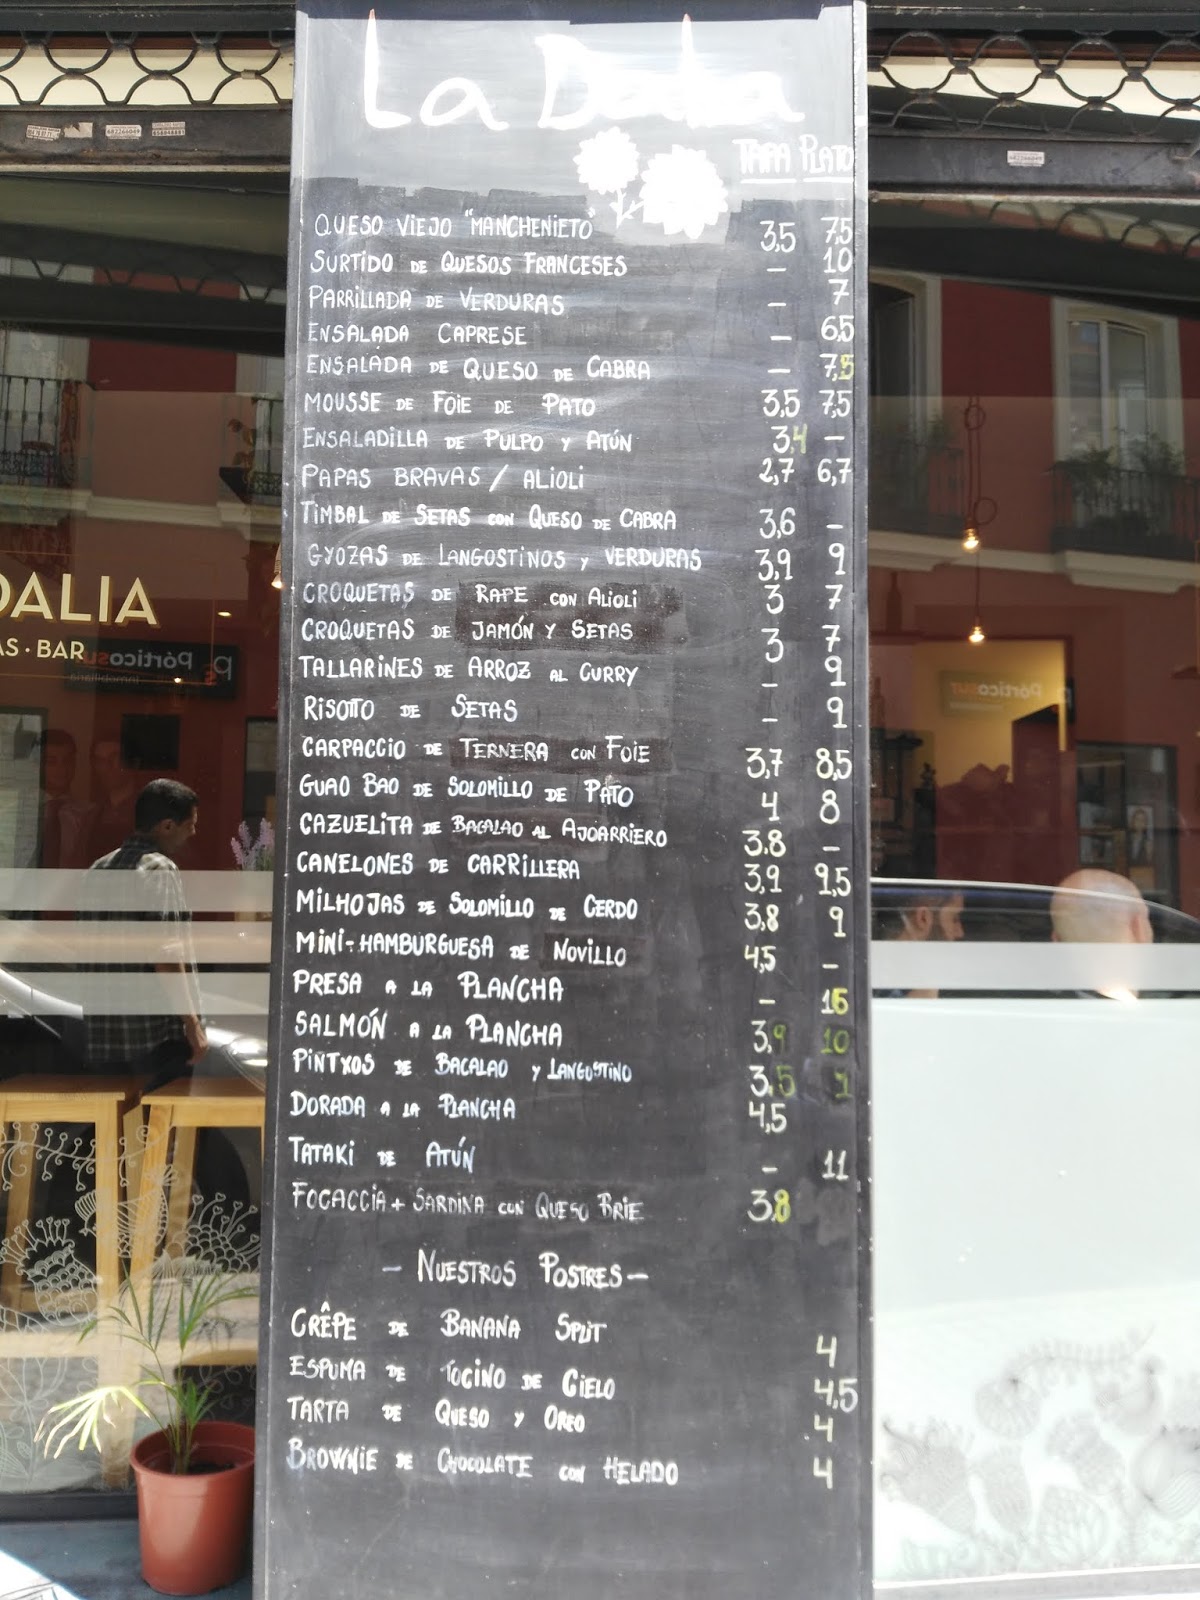 La Dalia
TAPA PLATO
QUESO VIEJO "MANCHENIETO" 3,5 7,5
SURTIDO DE QUESOS FRANCESES – 10
PARRILLADA DE VERDURAS – 7
ENSALADA CAPRESE – 6,5
ENSALADA DE QUESO DE CABRA – 7,5
MOUSSE DE FOIE DE PATO 3,5 7,5
ENSALADILLA DE PULPO Y ATÚN 3,4 –
PAPAS BRAVAS / ALIOLI 2,7 6,7
TIMBAL DE SETAS CON QUESO DE CABRA 3,6 –
GYOZAS DE LANGOSTINOS Y VERDURAS 3,9 9
CROQUETAS DE RAPE CON ALIOLI 3 7
CROQUETAS DE JAMÓN Y SETAS 3 7
TALLARINES DE ARROZ AL CURRY – 9
RISOTTO DE SETAS – 9
CARPACCIO DE TERNERA CON FOIE 3,7 8,5
GUAO BAO DE SOLOMILLO DE PATO 4 8
CAZUELITA DE BACALAO AL AJOARRIERO 3.8 –
CANELONES DE CARRILLERA 3,9 9,5
MILHOJAS DE SOLOMILLO DE CERDO 3,8 9
MINI-HAMBURGUESA DE NOVILLO 4,5 –
PRESA A LA PLANCHA – 15
SALMÓN A LA PLANCHA 3,9 10
PINTXOS DE BACALAO Y LANGOSTINO 3,5 9
DORADA A LA PLANCHA 4,5
TATAKI DE ATÚN – 11
FOCACCIA + SARDINA CON QUESO BRIE 3,8
– NUESTROS POSTRES –
CRÊPE DE BANANA SPLIT 4
ESPUMA DE TOCINO DE CIELO 4,5
TARTA DE QUESO Y OREO 4
BROWNIE DE CHOCOLATE CON HELADO 4
DALIA
AS · BAR
Pórticosur
Inmobiliaria
Pórticosur